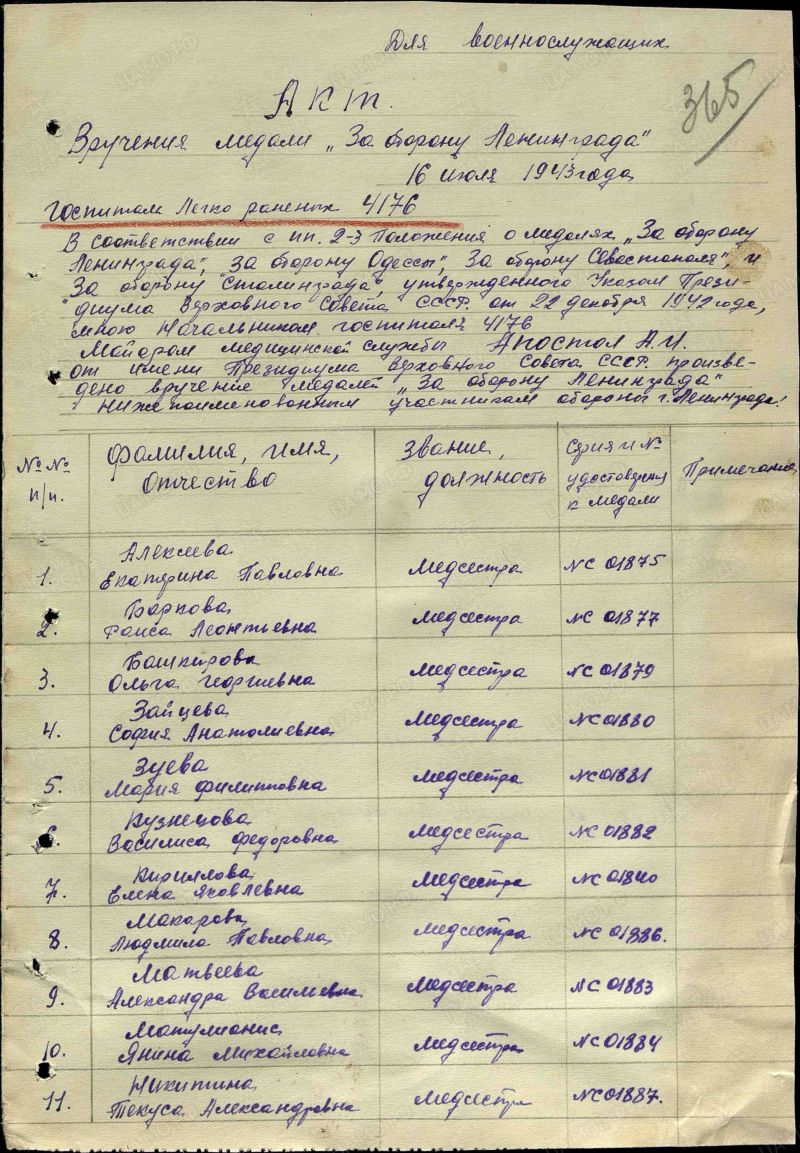 Для военнослужащих
365
Акт.
Вручения медали „За оборону Ленинграда"
16 июля 1943 года
Госпиталь Легко раненых 4176
В соответствии с пп. 2-3 Положения о медалях „За оборону
Ленинграда", За оборону Одессы", За оборону Севастополя", и
За оборону "Сталинграда", утвержденного Указом Прези-
диума Верховного Совета СССР. от 22 декабря 1942 года,
мною Начальником госпиталя 4176
Майором медицинской службы Апостол А.И.
от имени Президиума Верховного Совета СССР. произве-
дено вручение медалей „За оборону Ленинграда"
нижепоименованным участникам обороны г. Ленинграда:
№№ п/п. Фамилия, имя, отчество Звание, должность Серия и № удостоверения к медали Примечание
Алексеева
1. Екатерина Павловна Медсестра №С 01875
Баркова
2. Раиса Леонтьевна Медсестра №С 01877
Башкирова
3. Ольга Георгиевна Медсестра №С 01879
Зайцева
4. София Анатолиевна Медсестра №С 01880
Зуева
5. Мария Филипповна Медсестра №С 01881
Кузнецова
6. Василиса Федоровна Медсестра №С 01882
Кириллова
7. Елена Яковлевна Медсестра №С 01840
Макарова
8. Людмила Павловна Медсестра №С 01886.
Матвеева
9. Александра Васильевна Медсестра №С 01883
Матулионис
10. Янина Михайловна Медсестра №С 01884
Никитина
11. Текуса Александровна Медсестра №С 01887.